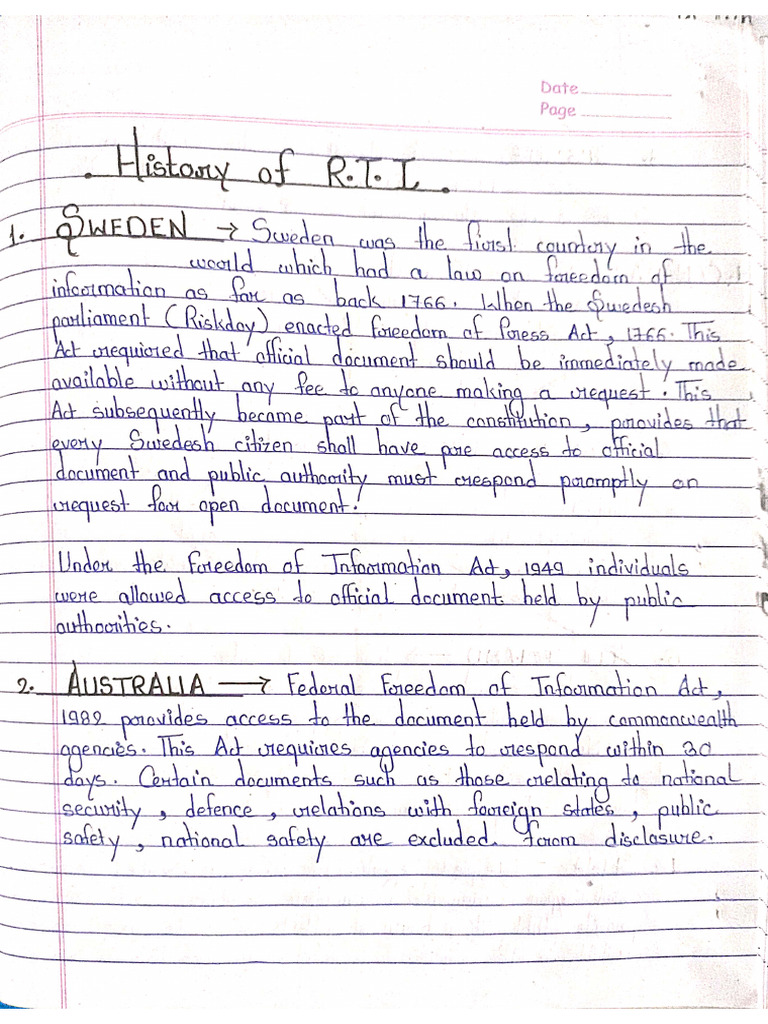 Date
Page
. History of R.T.I.
1. SWEDEN → Sweden was the first country in the
world which had a law on freedom of
information as far as back 1766. When the Swedesh
parliament (Riskday) enacted freedom of Press Act, 1766. This
Act required that official document should be immediately made
available without any fee to anyone making a request. This
Act subsequently became part of the constitution, provides that
every Swedesh citizen shall have pre access to official
document and public authority must respond promptly on
request for open document!
Under the Freedom of Information Act, 1949 individuals
were allowed access to official document held by public
authorities.
2. AUSTRALIA → Federal Freedom of Information Act,
1982 provides access to the document held by commonwealth
agencies. This Act requires agencies to respond within 30
days. Certain documents such as those relating to national
security, defence, relations with foreign states, public
safety, national safety are excluded. from disclosure.